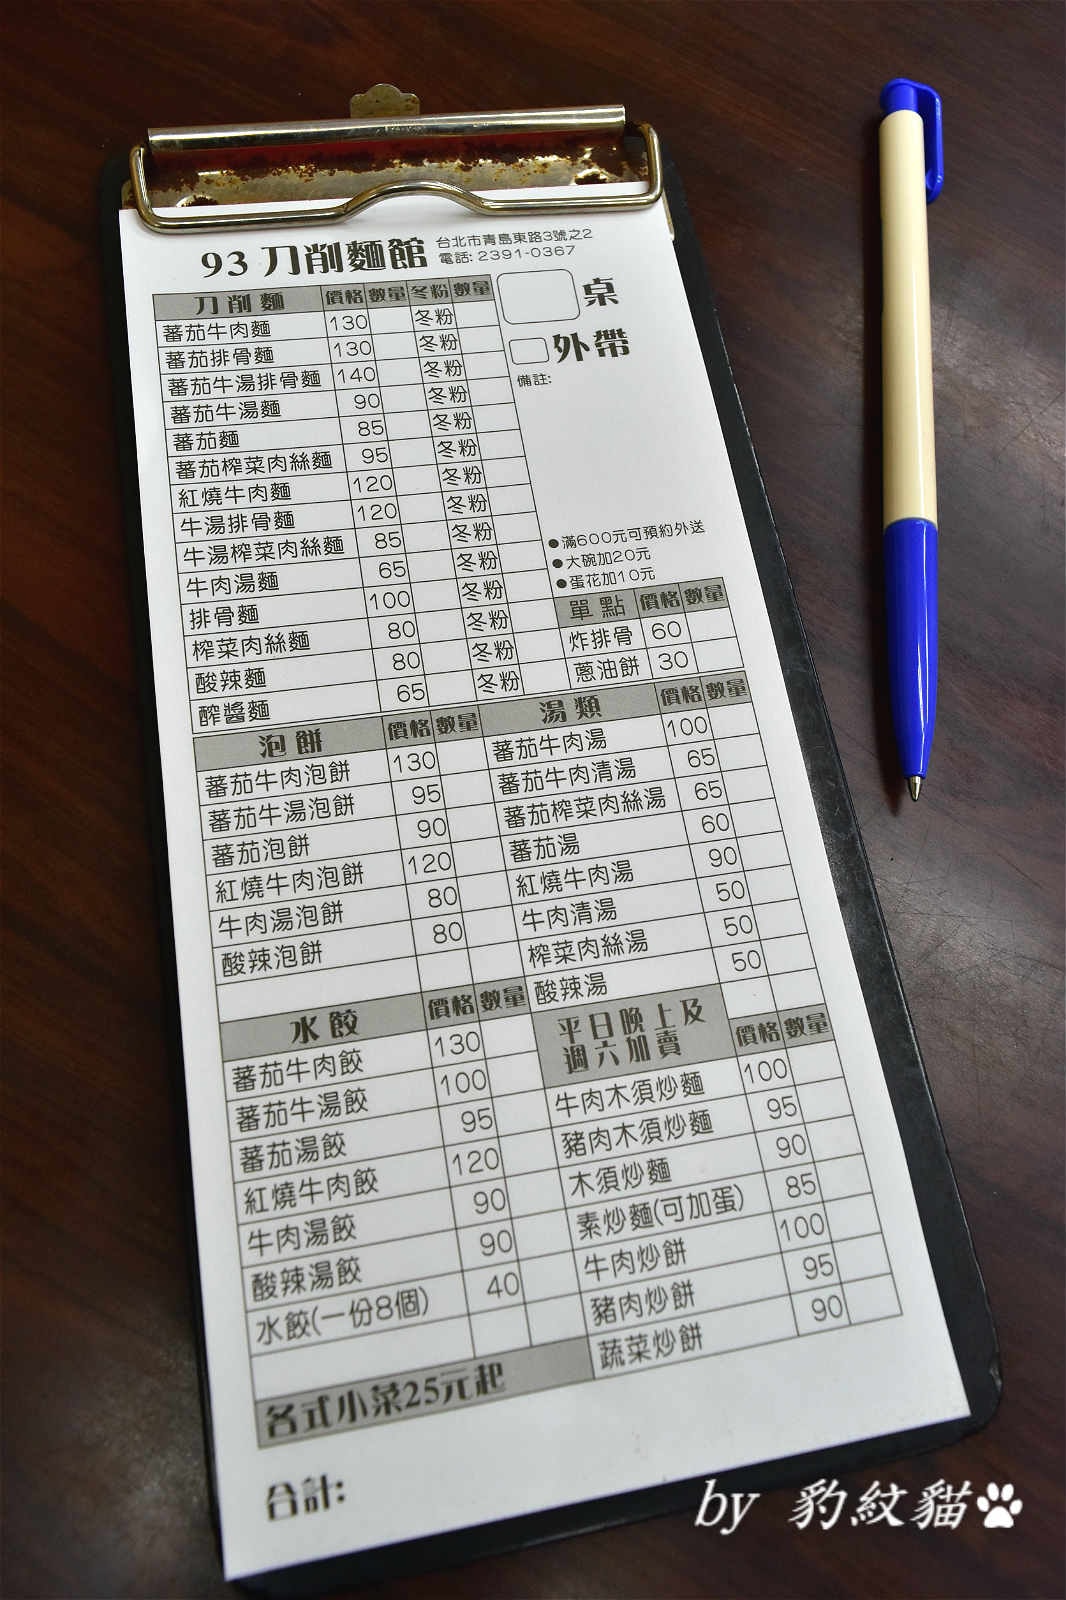 93 刀削麵館
台北市青島東路3號之2
電話: 2391-0367
刀削麵 價格 數量 冬粉 數量
蕃茄牛肉麵 130 冬粉
蕃茄排骨麵 130 冬粉
蕃茄牛湯排骨麵 140 冬粉
蕃茄牛湯麵 90 冬粉
蕃茄麵 85 冬粉
蕃茄榨菜肉絲麵 95 冬粉
紅燒牛肉麵 120 冬粉
牛湯排骨麵 120 冬粉
牛湯榨菜肉絲麵 85 冬粉
牛肉湯麵 65 冬粉
排骨麵 100 冬粉
榨菜肉絲麵 80 冬粉
酸辣麵 80 冬粉
醡醬麵 65 冬粉
桌
外帶
備註:
●滿600元可預約外送
●大碗加20元
●蛋花加10元
單點 價格 數量
炸排骨 60
蔥油餅 30
泡餅 價格 數量
蕃茄牛肉泡餅 130
蕃茄牛湯泡餅 95
蕃茄泡餅 90
紅燒牛肉泡餅 120
牛肉湯泡餅 80
酸辣泡餅 80
湯類 價格 數量
蕃茄牛肉湯 100
蕃茄牛肉清湯 65
蕃茄榨菜肉絲湯 65
蕃茄湯 60
紅燒牛肉湯 90
牛肉清湯 50
榨菜肉絲湯 50
酸辣湯 50
水餃 價格 數量
蕃茄牛肉餃 130
蕃茄牛湯餃 100
蕃茄湯餃 95
紅燒牛肉餃 120
牛肉湯餃 90
酸辣湯餃 90
水餃(一份8個) 40
平日晚上及
週六加賣 價格 數量
牛肉木須炒麵 100
豬肉木須炒麵 95
木須炒麵 90
素炒麵(可加蛋) 85
牛肉炒餅 100
豬肉炒餅 95
蔬菜炒餅 90
各式小菜25元起
合計:
by 豹紋貓